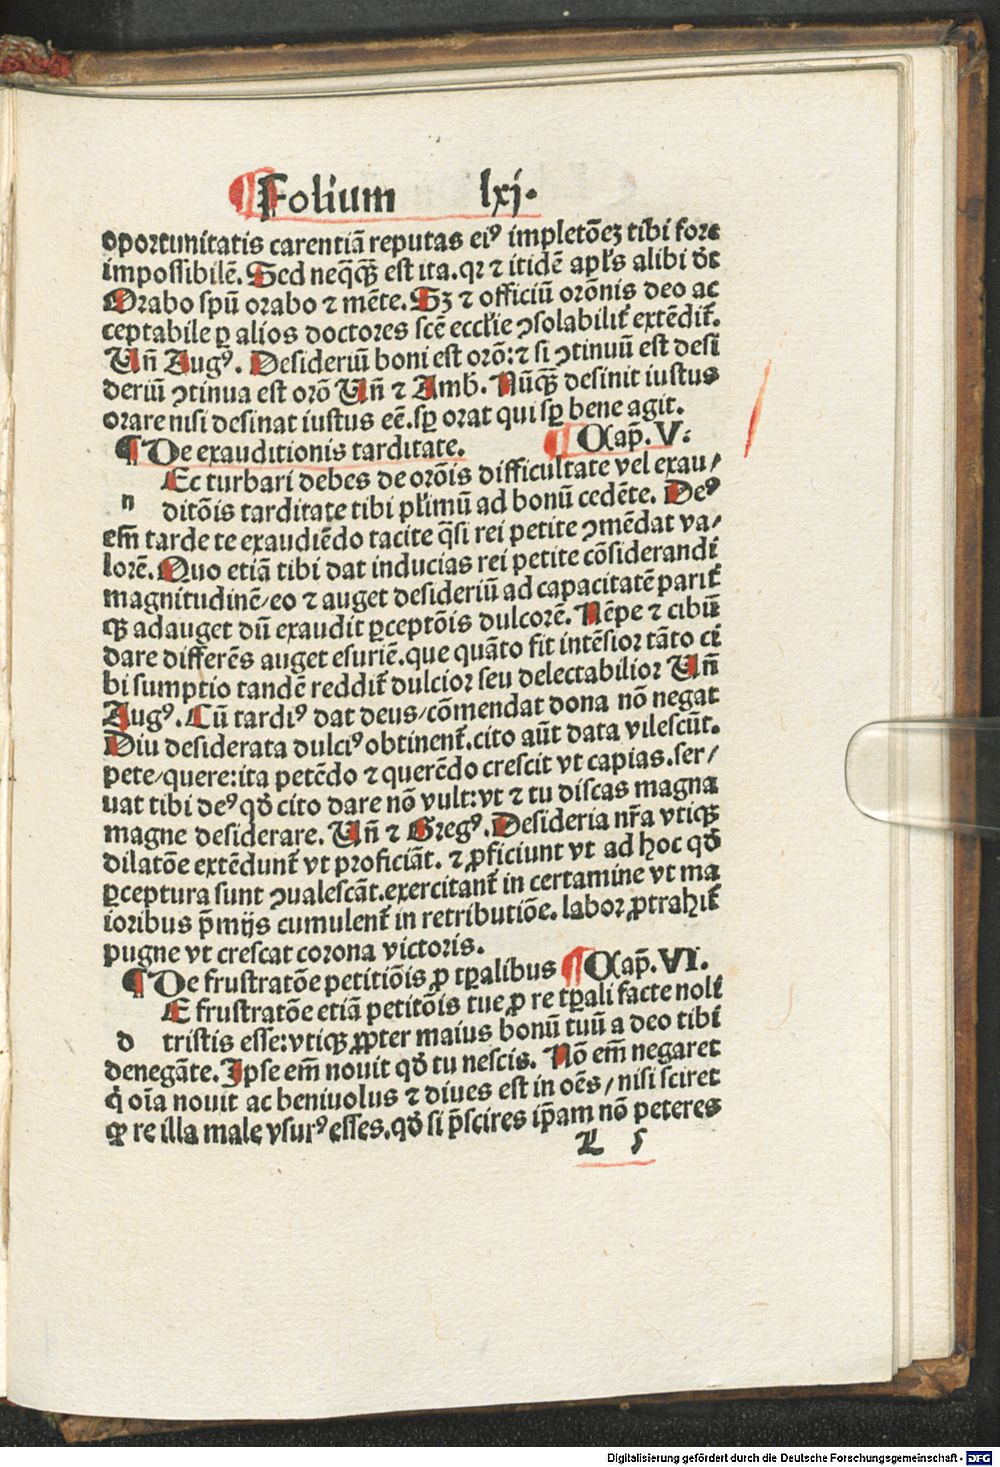 ¶Folium lxj.
oportunitatis carentiā reputas ei⁹ impletōeȝ tibi fore
impossibilē. Sed neq̄qȝ̄ est ita. qr ⁊ itidē apl's alibi dt̄
Orabo spū orabo ⁊ mēte. Sȝ ⁊ officiū orōnis deo ac
ceptabile ꝑ alios doctores scē eccl'ie ꝯsolabilit̄ extēdit̄.
Un̄ Aug⁹. Desideriū boni est orō: ⁊ si ꝯtinuū est desi
deriū ꝯtinua est orō Un̄ ⁊ Amb. Nūqȝ̄ desinit iustus
orare nisi desinat iustus eē. sꝑ orat qui sꝑ bene agit.
¶ De exauditionis tarditate. ¶ Cap̄. V.
n Ec turbari debes de orōis difficultate vel exau/
ditōis tarditate tibi pl'imū ad bonū cedēte. De⁹
em̄ tarde te exaudiēdo tacite q̄si rei petite ꝯmēdat va/
lorē. Quo etiā tibi dat inducias rei petite cōsiderandi
magnitudinē/eo ⁊ auget desideriū ad capacitatē parit̄
qȝ adauget dū exaudit ꝑceptōis dulcorē. Nēpe ⁊ cibū
dare differēs auget esuriē. que quāto fit intēsior tāto ci
bi sumptio tandē reddit̄ dulcior seu delectabilior Un̄
Aug⁹. Cū tardi⁹ dat deus/cōmendat dona nō negat
Diu desiderata dulci⁹ obtinent̄. cito aūt data vilescūt.
pete/quere: ita petēdo ⁊ querēdo crescit vt capias. ser/
uat tibi de⁹ qd̄ cito dare nō vult: vt ⁊ tu discas magna
magne desiderare. Un̄ ⁊ Greg⁹. Desideria nr̄a vtiqȝ
dilatōe extēdunt̄ vt proficiāt. ⁊ ꝓficiunt vt ad hoc qd̄
ꝑceptura sunt ꝯualescāt. exercitant̄ in certamine vt ma
ioribus p̄mijs cumulent̄ in retributiōe. labor ꝓtrahit̄
pugne vt crescat corona victoris.
¶ De frustratōe petitiōis ꝓ tꝑalibus ¶ Cap̄. VI.
d E frustratōe etiā petitōis tue ꝓ re tꝑali facte noli
tristis esse: vtiqȝ ꝓpter maius bonū tuū a deo tibi
denegāte. Ipse em̄ nouit qd̄ tu nescis. Nō em̄ negaret
q̇ oīa nouit ac beniuolus ⁊ diues est in oēs/nisi sciret
ꝙ re illa male vsur⁹ esses. qd̄ si p̄scires ip̄am nō peteres
Digitalisierung gefördert durch die Deutsche Forschungsgemeinschaft - DFG